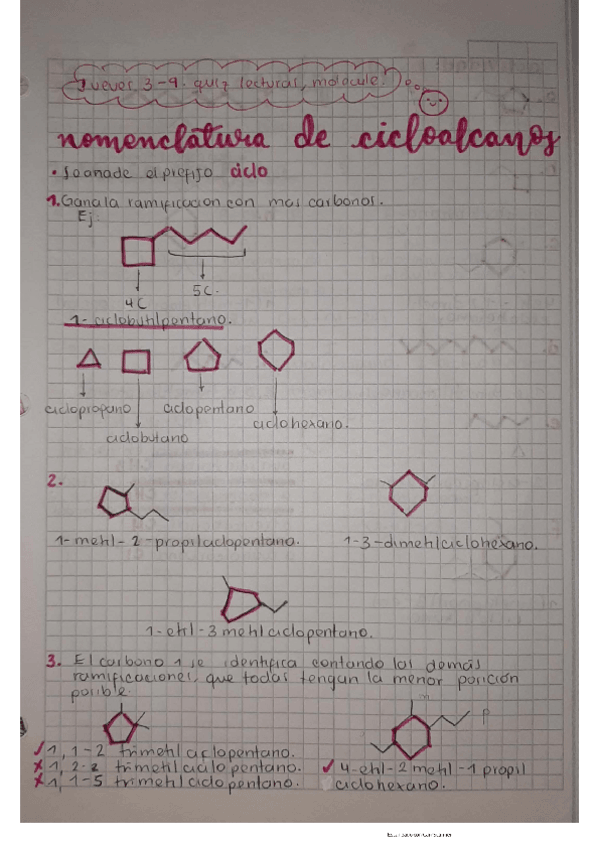 Jueves 3-9. quiz lecturas, molecule.
nomenclatura de cicloalcanos
• Se añade el prefijo ciclo
1. Gana la ramificacion con mas carbonos.
Ej:
4C
5C.
1- ciclobutilpentano.
ciclopropano
ciclopentano
ciclohexano.
ciclobutano
2.
1-metil-2-propilciclopentano.
1-3-dimetilciclohexano.
1-etil-3metilciclopentano.
3. El carbono 1 se identifica contando las demás
ramificaciones, que todas tengan la menor posición
posible.
m
P
✓ 1,1-2 trimetilciclopentano.
x 1,2-2 trimetil ciclo pentano.
x 1,1-5 trimetil ciclo pentano.
✓ 4-etil-2metil-1 propil
ciclohexano.